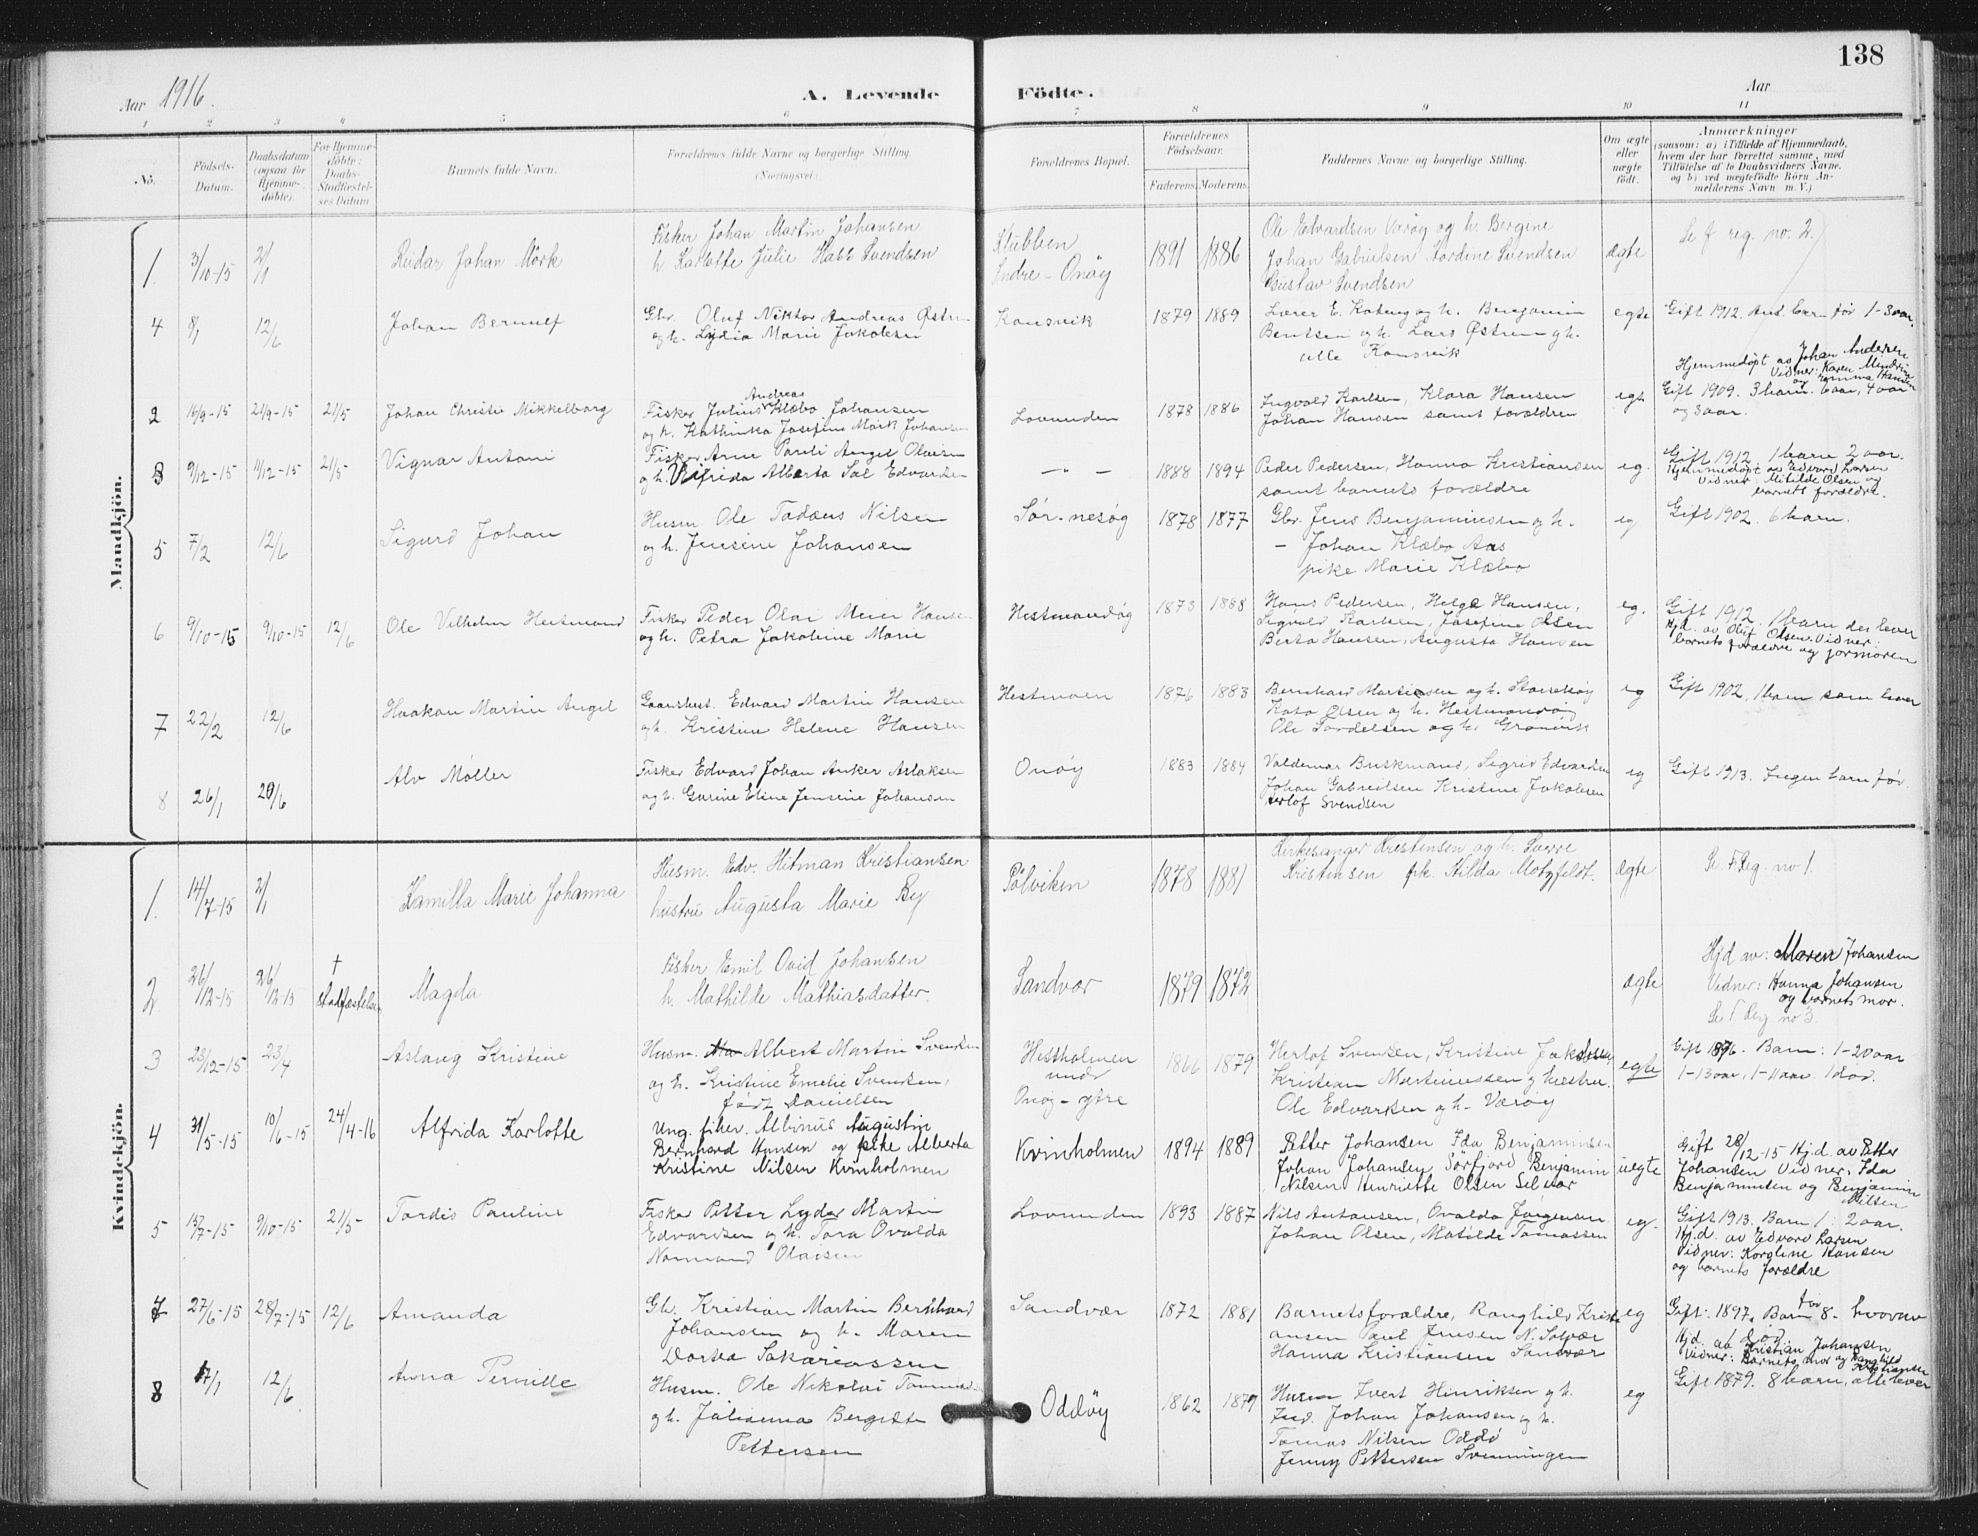 138
Aar 1916. A. Levende Födte. Aar
1 2 3 4 5 6 7 8 9 10 11
No. Födsels-Datum. Daabsdatum (ogsaa for Hjemme-döbte). For Hjemme-döbte: Daabs-Stadfæstel-ses Datum Barnets fulde Navn. Forældrenes fulde Navne og borgerlige Stilling. (Næringsvei) Forældrenes Bopæl. Forældrenes Födselsaar. Faderens. Moderens. Faddernes Navne og borgerlige Stilling. Om ægte eller uægte födt. Anmærkninger (saasom: a) i Tilfælde af Hjemmedaab, hvem der har forrettet samme, med Tilföielse af to Daabsvidners Navne, og b) ved uægtefödte Börn An-melderens Navn m. V.)
Mandkjön.
1. 3/10-15 2/1 Reidar Johan Mörk
Fisker Johan Martin Johansen
h. Karlotte Julie Svendsen
Stubben
Indre-Onöy
1891 1886
Ole Edvardsen Væröy og h. Bergine
Johan Gabrielsen Nordine Svendsen
Gustav Svendsen
ægte
Se f reg. no. 2.
4 8/1 12/6 Johan Bernulf
Gbr. Oluf Viktor Andreas Østrem
og h. Lydia Marie Jakobsen
Konsvik 1879 1889
Lærer E. og h. Benjamin
Bentsen og h. Lars Østrem og h.
alle Konsvik
egte
Gift 1912. Ant. barn før 1-3 aar.
2 15/9-15 21/9-15 21/5 Johan Christie Mikkelborg
Andreas
Fisker Julius Klæbo Johansen
og h. Kathinka Josefine Mørk Johansen
Lovunden 1878 1886
Ingvald Karlsen, Klara Hansen
Johan Hansen samt forældrene
egte
Hjemmedøpt av Johan Andersen
Vidner: Karen
og Emma Hansen
Gift 1909. 3 barn. 6 aar, 4 aar
og 3 aar.
3 9/12-15 11/12-15 21/5 Vignar Antoni
Fisker Arne Pareli Angel Olaisen
og h. Alfrida Alberta Sal Edvardsen
— " — 1888 1894
Peder Pedersen, Hanna Kristiansen
samt barnets forældre
eg.
Gift 1912. 1 barn 2 aar.
Hjemmedøpt av Edvard Larsen
Vidner: Mitilde Olsen og
barnets forældre.
5 7/2 12/6 Sigurd Johan
Husm. Ole Tadæus Nilsen
og h. Jensine Johansen
Sør-nesøy 1878 1877
Gbr. Jens Benjaminsen og h.
- Johan Klæbo Aas
pike Marie Klæbo
eg
Gift 1902. 6 barn.
6 9/10-15 9/10-15 12/6 Ole Vilhelm Hestmand
Fisker Peder Olai Meier Hansen
og h. Petra Jakobine Marie
Hestmandøy 1873 1888
Hans Pedersen, Helge Hansen,
Sigvald Karlsen, Josefine Olsen
Berta Hansen, Augusta Hansen
eg.
Gift 1912. 1 barn der lever
Hj.d. av Oluf Olsen. Vidner:
barnets forældre og jormoren
7 22/2 12/6 Haakon Martin Angel
Gaardsbest. Edvard Martin Hansen
og h. Kristine Helene Hansen
Hestmoen 1876 1883
Bernhard Martinsen og h. Storselsøy
Kato Olsen og h. Hestmandøy
Ole Tordelsen og h. Grønvik
eg
Gift 1902. 1 barn som lever
8 26/1 20/6 Alv Møller
Fisker Edvard Johan Anker Aslaksen
og h. Gurine Eline Jensine Johansen
Onöy 1883 1884
Valdemar Buskmand, Sigrid Edvardsen
Johan Gabrielsen Kristine Jakobsen
Herlof Svendsen
eg
Gift 1913. Ingen barn før
Kvindekjön.
1. 14/7-15 2/1 Kamilla Marie Johanna
Husm. Edv. Hitman Kristiansen
hustru Augusta Marie By
Pölviken 1878 1881
Kirkesanger Kristensen og h. Sverre
Kristensen frk. Hilda Motzfeldt.
Ægte
Se F. Reg. no 1.
2. 26/12-15 26/12-15 † stadfæstelse Magda
Fisker Emil Ovid Johansen
h. Mathilde Mathiasdatter.
Sandvær 1879 1872
ægte
Hjd av: Maren Johansen
Vidner: Hanna Johansen
og barnets mor.
Se F. Reg no 3.
3 23/12-15 23/4 Aslaug Kristine
Husm. Albert Martin Svendsen
og h. Kristine Emelie Svensken,
født Danielsen
Hestholmen
under
Onøy-ytre
1866 1879
Herlof Svensen, Kristine Jakobsen
Kristian Martinussen og hustru.
Ole Edvardsen og h. Værøy
egte
Gift 1896. Barn: 1-20 aar
1-13 aar, 1-11 aar. 1 død.
4 31/5-15 10/6-15 24/4-16 Alfrida Karlotte
Ung. fiker. Albinus Augustin
Bernhard Hansen og pike Alberta
Kristine Nilsen Kvinholmen
Kvinholmen 1894 1889
Petter Johansen Ida Benjaminsen
Johan Johansen Sörfjord Benjamin
Nilsen Henriette Olsen Selvær
uegte
Gift 28/12-15 Hj.d. av Petter
Johansen Vidner: Ida
Benjaminsen og Benjamin
Nilsen
5 15/7-15 9/10-15 21/5 Tordis Pauline
Fisker Petter Lyder Martin
Edvardsen og h. Tora Ovalda
Normand Olaisen
Lovunden 1893 1887
Nils Antonsen, Ovalda Jørgensen
Johan Olsen, Matilde Tomassen
eg.
Gift 1913. Barn 1: 2 aar.
Hj.d. av Edvard Larsen
Vidner: Karoline Hansen
og barnets forældre
7 27/6-15 28/7-15 12/6 Amanda
Gb. Kristian Martin Bernhard
Johansen og h. Maren
Dortea Sakariassen
Sandvær 1872 1881
Barnets forældre, Ranghild Kristi-
ansen Paul Jensen N. Solvær
Hanna Kristiansen Sandvær
eg
Gift: 1897. Barn før 8. hvorav
1 død
Hjd. av Kristian Johansen
Vidner: Barnets mor og Ranghild
Kristiansen
8 17/1 12/6 Anna Pernille
Husm. Ole Nikolai Tommas
og h. Julianna Bergitte
Pettersen
Oddöy 1862 1879
Husm Ivert Henriksen og h.
Ind. Johan Johansen og h.
Tomas Nilsen Oddö
Jenny Pettersen Svenningen
eg
Gift 1879. 8 barn, alle lever